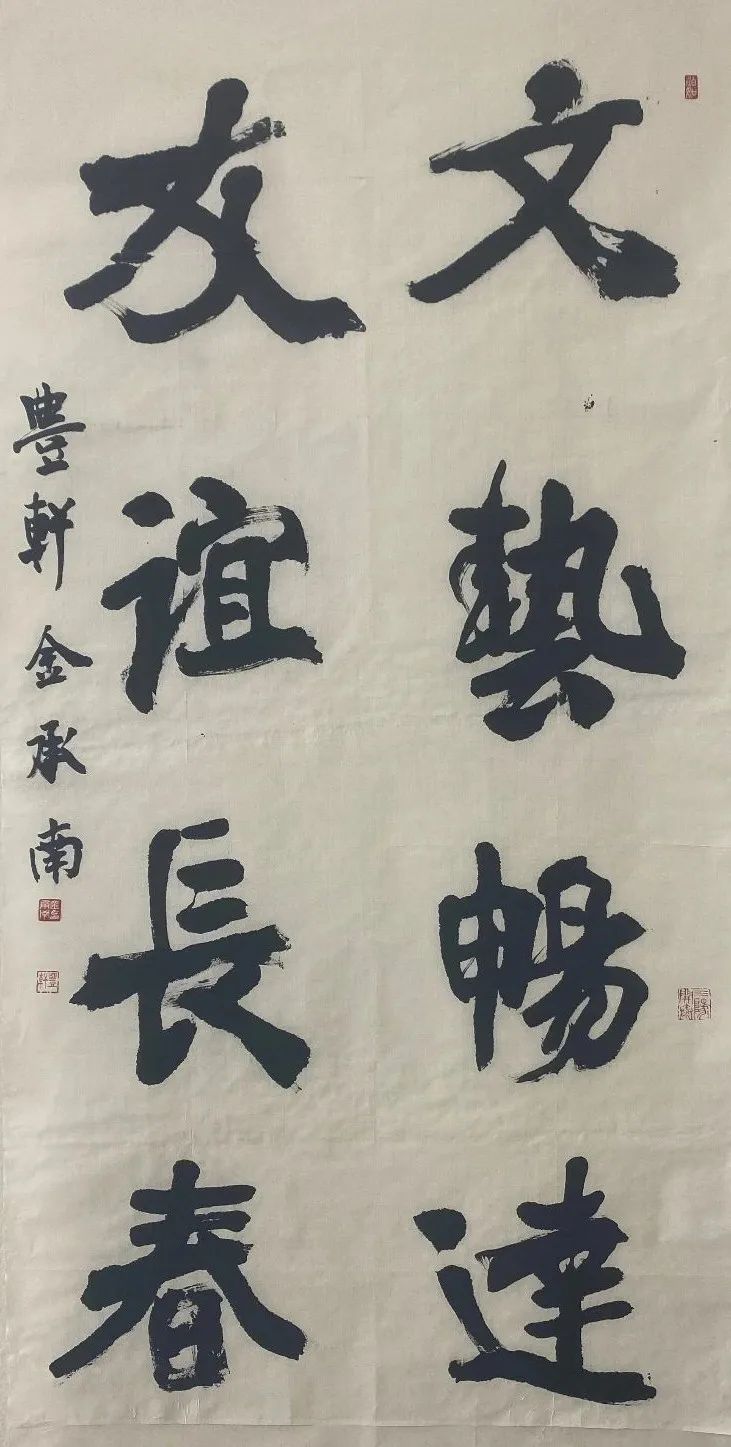 文藝暢達
友誼長春
豊軒金承南